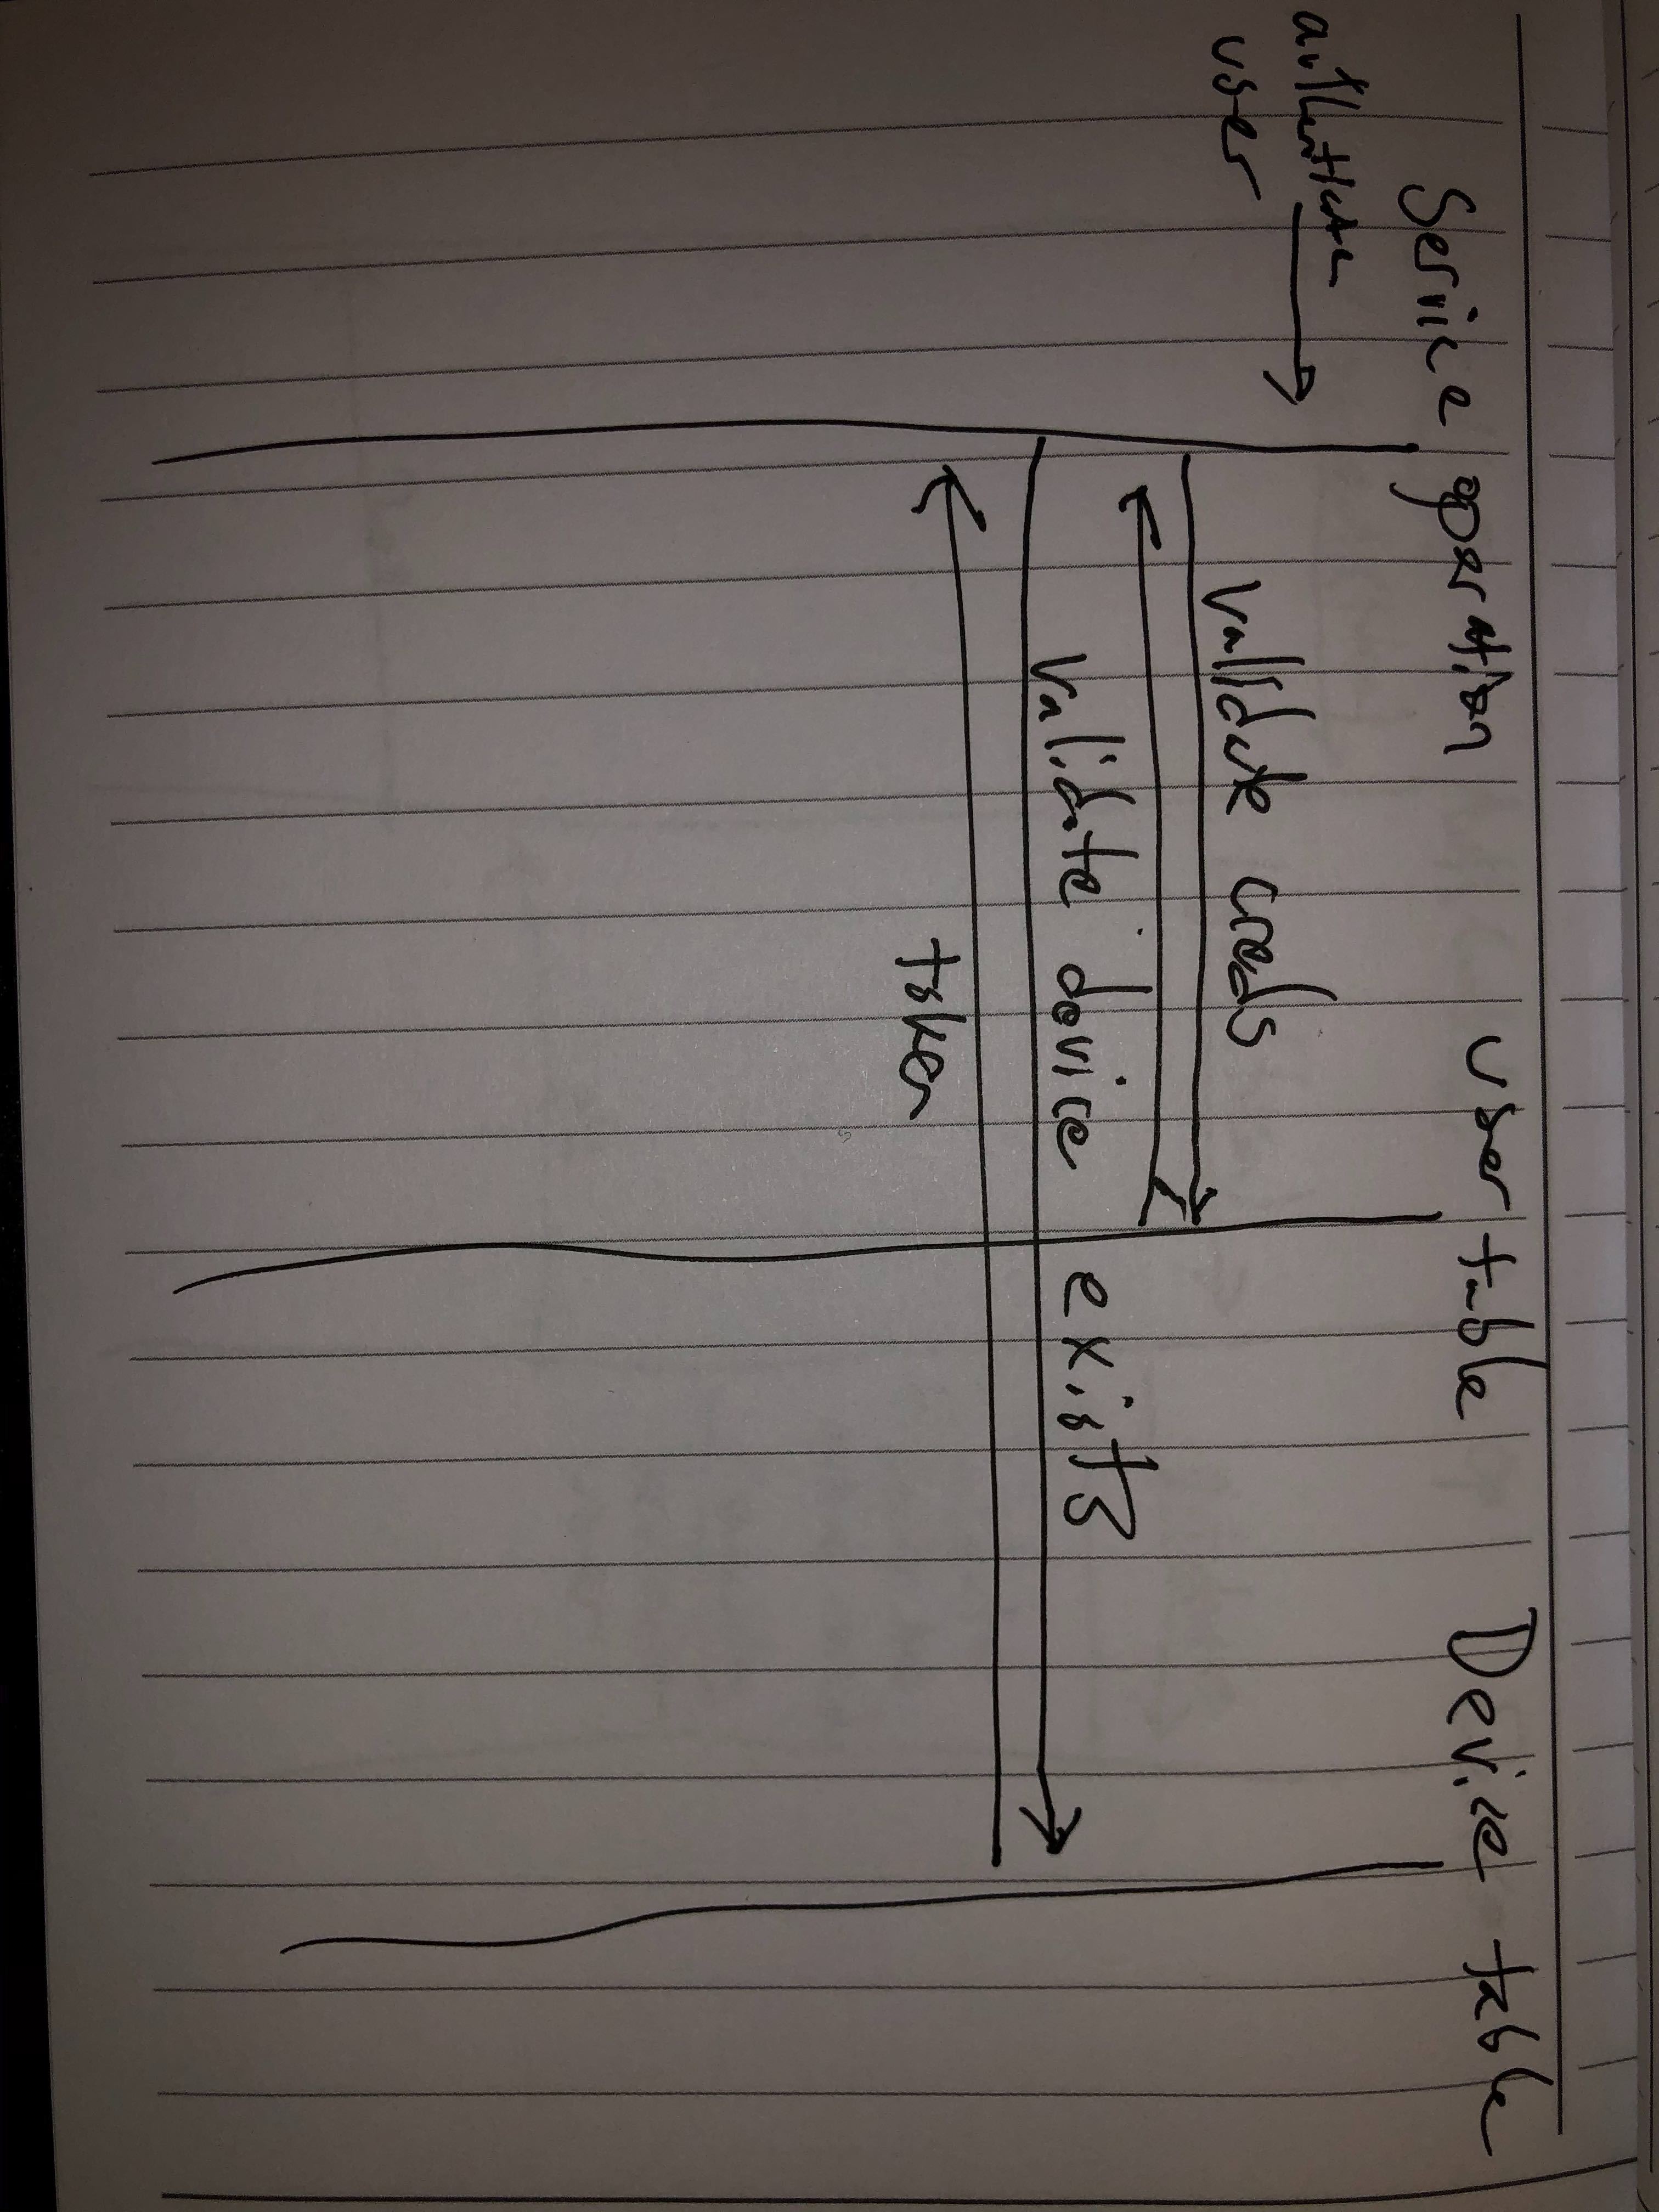 Service operation user table Device table
authenticate
user
validate creds
validate device exists
token